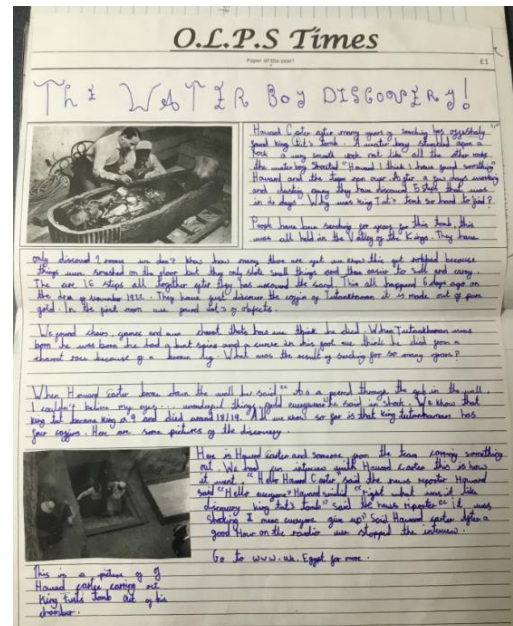 O.L.P.S Times
Paper of the year!
£1
The WATER Boy DISCOVERY!
Howard Carter after many years of searching has
found king tut's tomb. A water boy stumbled apon a
rock a very small rock not like all the other rocks
the water boy shouted "Howard I think I have found something"
Howard and the team ran over. After a few days working
and dusting away they have discoverd 5 steps that was
in days. Why was king Tut's tomb so hard to find?
People have been searching for years for this tomb, this
was all held in the Valley of the Kings. They have
only discoverd rooms we don't know how many there are yet we know this got robbed because
things were smashed on the floor but they only stole small things and than easier to sell and carry.
The are 16 steps all together after they has removed the sand. This all happend 6 days ago on
the of November 1922. They have just discover the coffin of Tutankhamun it is made out of pure
gold. In the first room we found lot's of objects.
We found chairs, games and a chariot thats how we think he died. When Tutankhamun was
born he was born he had a bent spine and a curve in his foot we think he died from a
chariot race because of a broken leg. What was the result of searching for so many years?
When Howard Carter broke down the wall he said "As a peered through the gap in the wall,
I couldn't believe my eyes... wonderful things, gold everywhere" he said in shock. We know that
king tut became king at 9 and died around 18/19. All we know so far is that king tutankhamun has
four coffins. Here are some pictures of the discovery.
Here is Howard Carter and someone from the team carrying something
out. We had an interview with Howard Carter this is how
it went. "Hello Howard Carter, said the news reporter. Howard
said "Hello everyone" Howard smiled "right what was it like
discovery king tut's tomb" said the news reporter "it was
shocking I mean everyone give up" Said Howard carter. After a
good Hour on the we stopped the interview.
Go to www.uk.Egypt for more.
This is a picture of
Howard carter carrying out
King tut's tomb out of his
chamber.